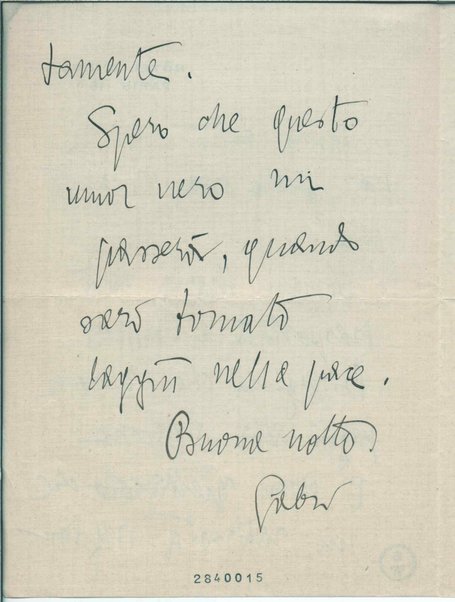 tamente.
Spero che questo
umor nero mi
passerà, quando
sarò tornato
laggiù nella pace.
Buona notte.
Gabri
2840015